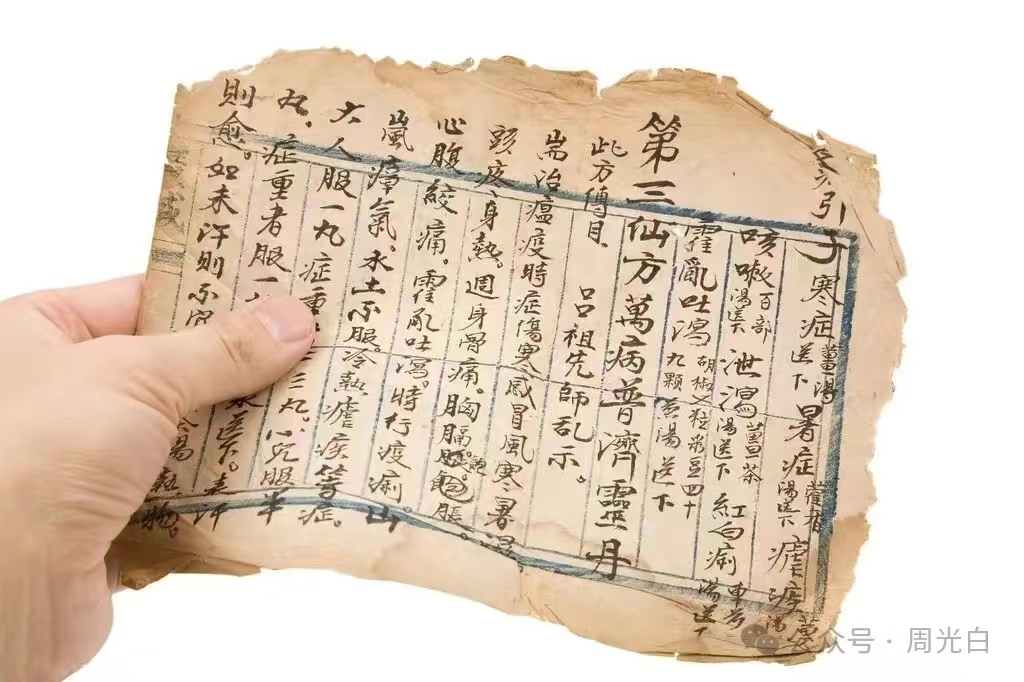 引子 寒症薑湯送下 暑症藿香湯送下 瘧疾
咳嗽百部湯送下 泄瀉薑茶湯送下 紅白痢車前湯送下
霍亂吐瀉胡椒 粒菉豆四十九顆煎湯送下
第三仙方萬病普濟靈丹
此方傳自 呂祖先師乩示。
耑治瘟疫時症傷寒感冒風寒暑濕
頭疼、身熱。週身骨痛。胸膈飽脹。
心腹絞痛。霍亂吐瀉。時行疫痢。山
嵐瘴氣。水土不服。冷熱瘧疾等症。
大人服一丸 症重 三丸。小児服半
丸、症重者服一
則愈。如未汗則不 送下。
熱物。
公众号·周光白